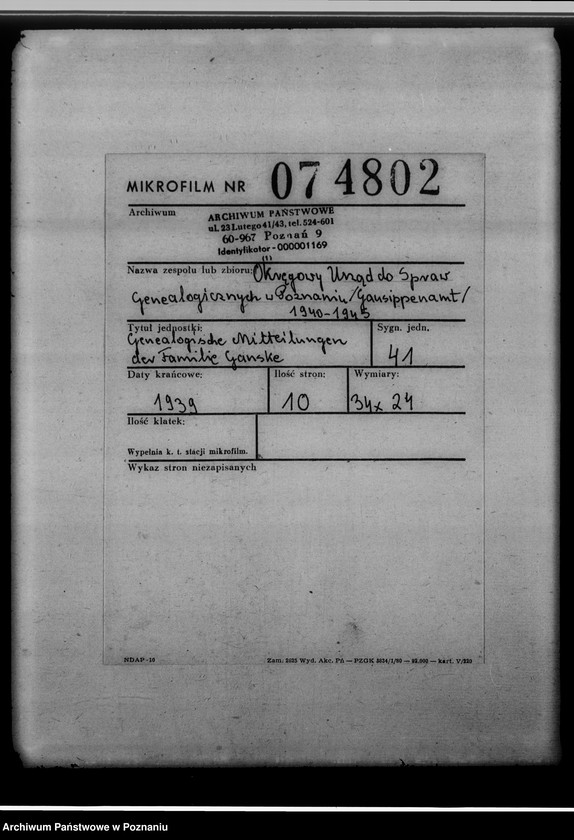 MIKROFILM NR 074802
Archiwum
ARCHIWUM PAŃSTWOWE
ul. 23 Lutego 41/43, tel. 524-601
60-967 Poznań 9
Identyfikator - 000001169
(1)
Nazwa zespołu lub zbioru: Okręgowy Urząd do Spraw
Genealogicznych w Poznaniu /Gausippenamt/
1940-1945
Tytuł jednostki: Sygn. jedn.
Genealogische Mitteilungen
der Familie Ganske 41
Daty krańcowe: Ilość stron: Wymiary:
1939 10 34x24
Ilość klatek:
Wypełnia k. t. stacji mikrofilm.
Wykaz stron niezapisanych
NDAP-10 Zam. 2625 Wyd. Akc. Pń — PZGK 3834/I/80 — 85.000 — kart. V/250
Archiwum Państwowe w Poznaniu